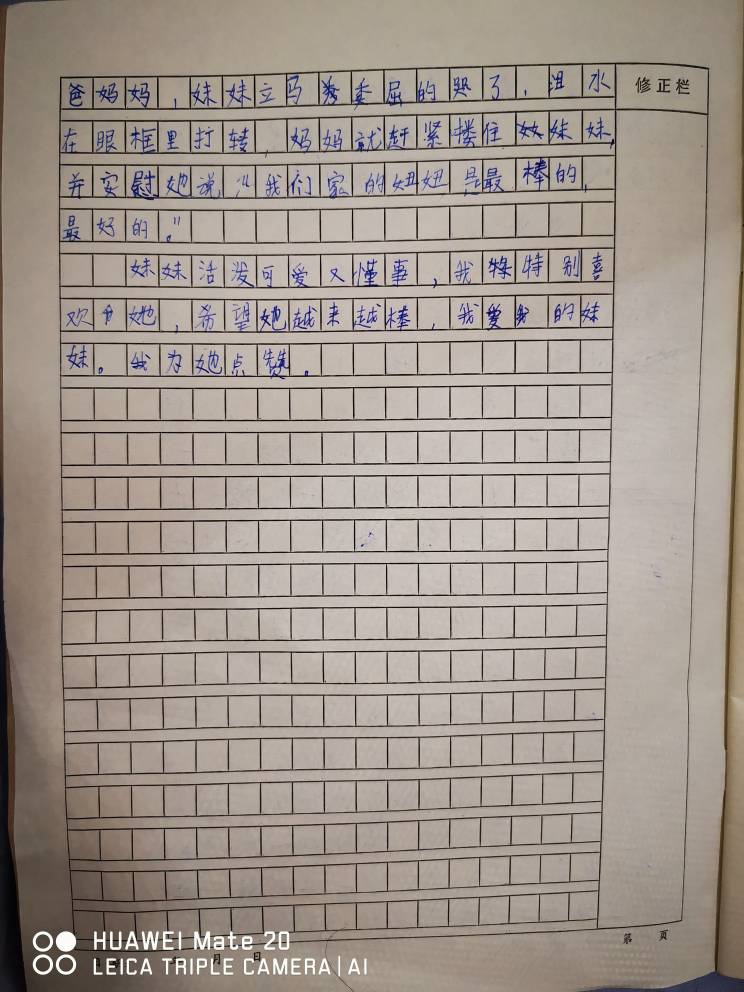 爸妈妈，妹妹立马委屈的哭了，泪水
在眼框里打转，妈妈就赶紧搂住妹妹，
并安慰她说“我们家的妞妞是最棒的，
最好的。”
妹妹活泼可爱又懂事，我特特别喜
欢她，希望她越来越棒，我爱我的妹
妹。我为她点赞。
修正栏
第 页
年 月 日
HUAWEI Mate 20
LEICA TRIPLE CAMERA | AI